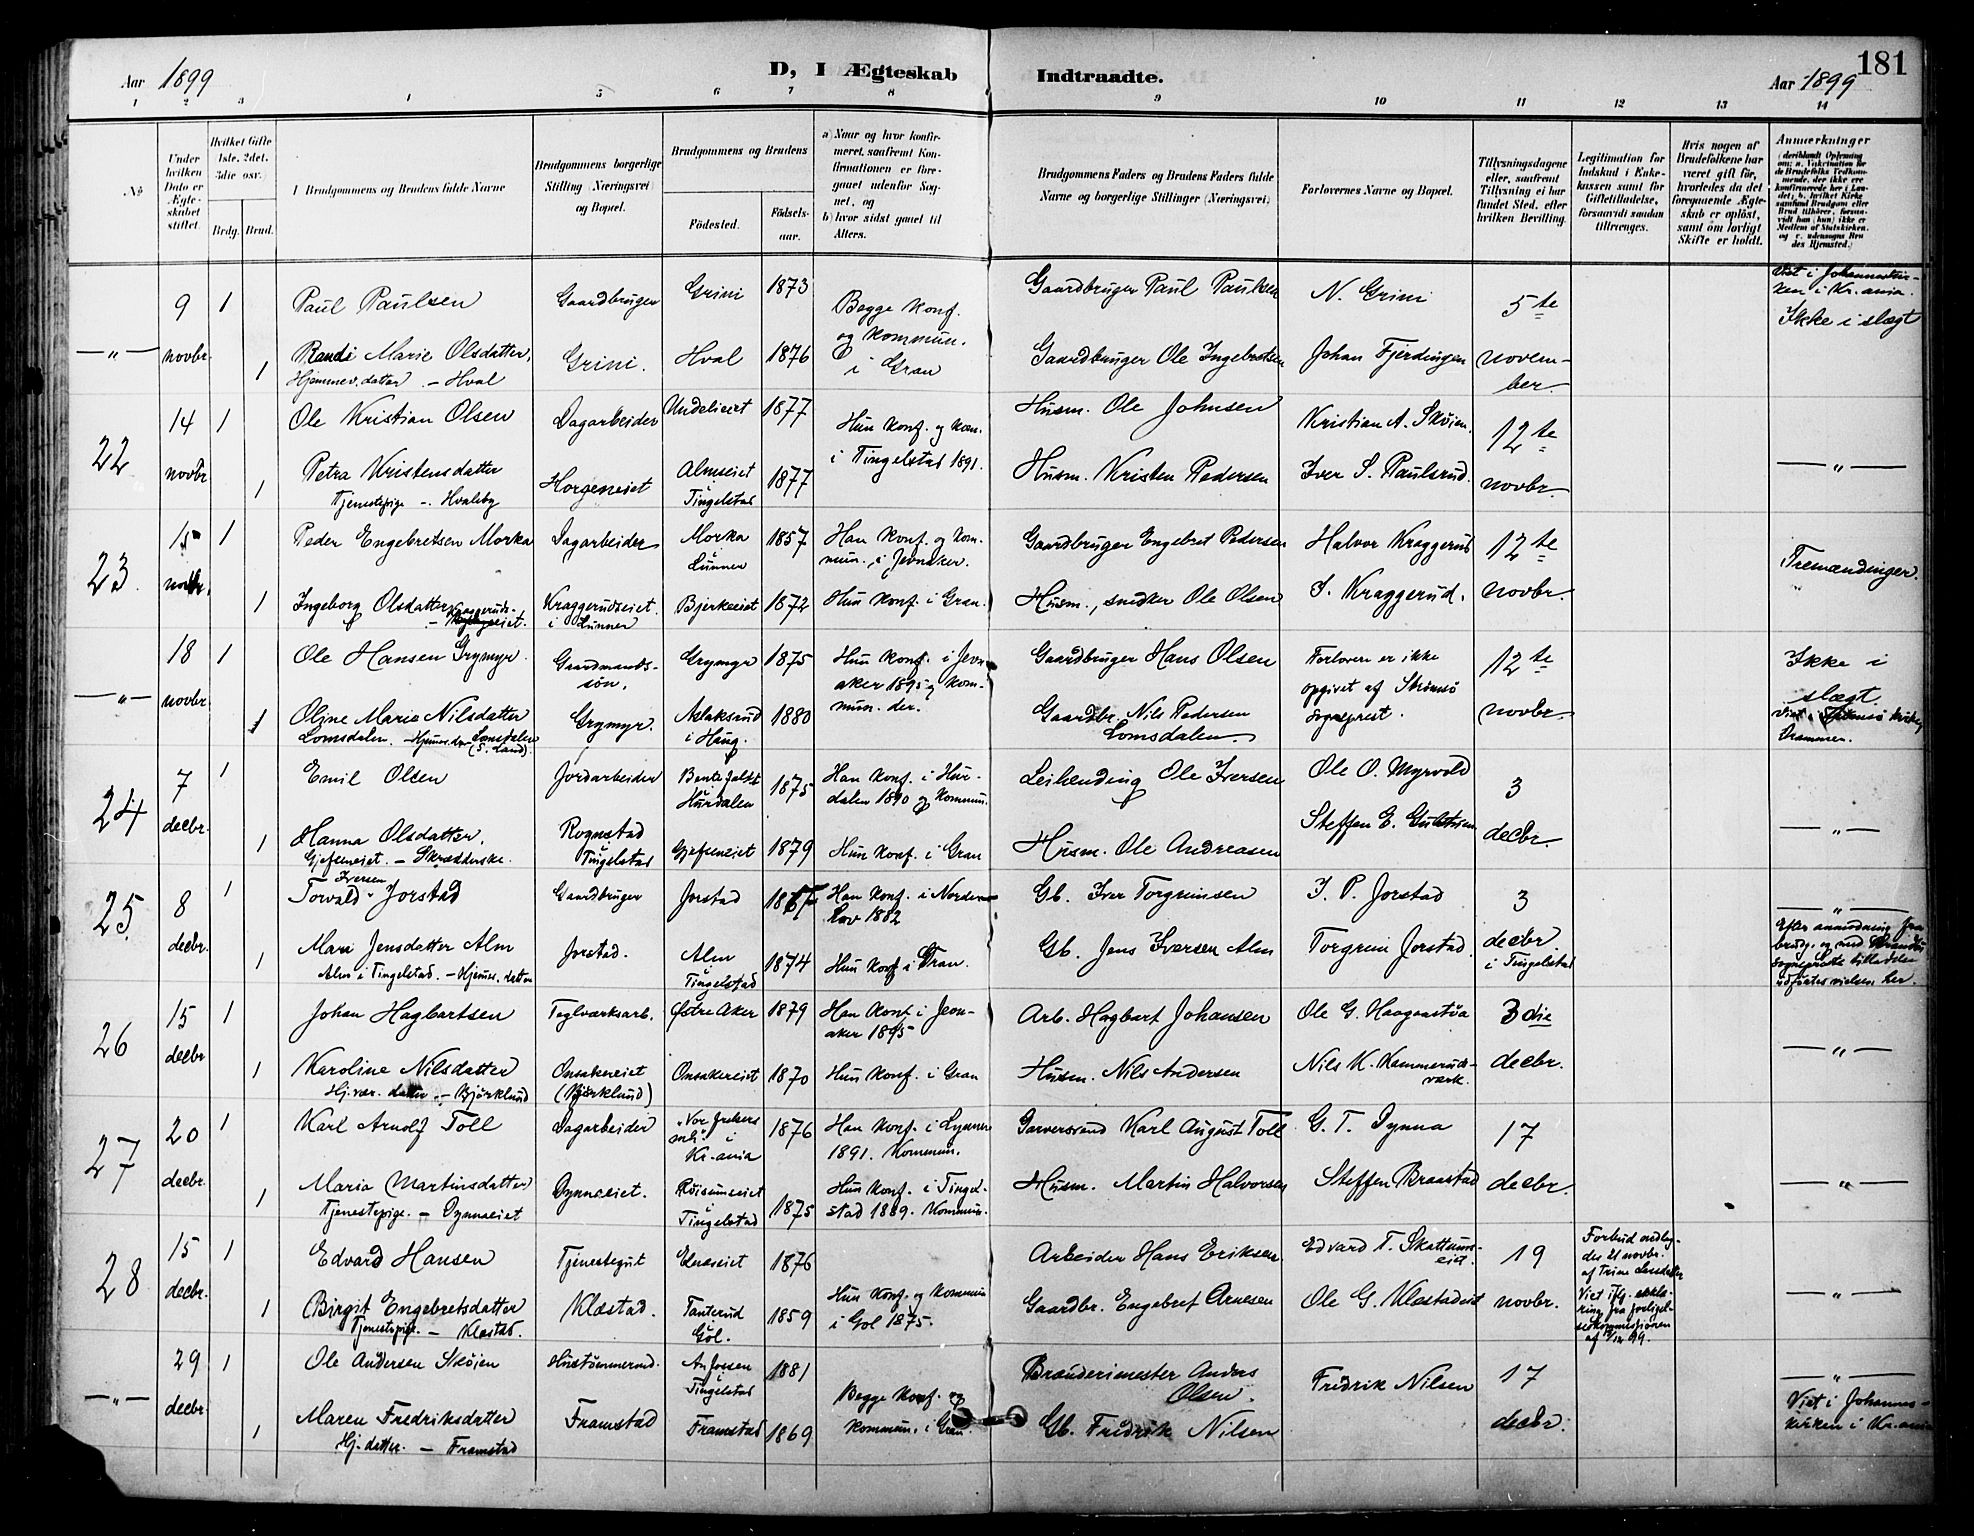 181
Aar 1899
D, I Ægteskab Indtraadte.
Aar 1899
1 2 3 4 5 6 7 8 9 10 11 12 13 14
No
Under hvilken Dato er Ægteskabet stiftet.
Hvilket Gifte 1ste, 2det, 3die osv.)
Brdg. Brud.
Brudgommens og Brudens fulde Navne
Brudgommens borgerlige Stilling (Næringsvei) og Bopæl.
Brudgommens og Brudens
Fødested.
Fødselsaar.
a) Naar og hvor konfirmeret, saafremt Konfirmationen er foregaaet udenfor Sognet, og
b) hvor sidst gaaet til Alters.
Brudgommens Faders og Brudens Faders fulde Navne og borgerlige Stillinger (Næringsvei)
Forlovernes Navne og Bopæl.
Tillysningsdagene eller, saafremt Tillysning ei har fundet Sted, efter hvilken Bevilling.
Legitimation for Indskud i Enkekassen samt for Giftetilladelse, forsaavidt saadan tiltrænges.
Hvis nogen af Brudefolkene har været gift før, hvorledes da det foregaaende Ægteskab er opløst, samt om lovligt Skifte er holdt.
Anmærkninger
—"— 9 novbr. 1 Paul Paulsen Gaardbruger Grini 1873 Begge konf. og kommun. i Gran Gaardbruger Paul Paulsen N. Grini 5te
Viet i Johanneskirken i Kr.ania. Ikke i slægt
1 Randi Marie Olsdatter, Grini. Hval 1876 Gaardbruger Ole Ingebretsen Johan Fjerdingen november.
Hjemmev. datter – Hval
22 14 novbr 1 Ole Kristian Olsen Dagarbeider Undelieiet 1877 Hun konf. og kom. i Tingelstad 1891. Husm. Ole Johnsen Kristian A. Skøien. 12te
1 Petra Kristensdatter Horgeneiet Almseiet Tingelstad 1877 Husm. Kristen Pedersen Iver S. Paulsrud. novbr. —"—
Tjenestepige –. Hvaleby
23. 15 novbr. 1 Peder Engebretsen Morka Dagarbeider Morka i Lunner 1857 Han konf. og kommun. i Jevnaker. Gaardbruger Engebret Pedersen Halvor Kraggerud 12te Tremændinger.
1 Ingeborg Olsdatter Kraggerudseiet i Lunner Bjerkeeiet 1872 Hun konf. i Gran. Husm., snedker Ole Olsen I. Kraggerud. novbr.
– Kraggerudseiet.
—"— 18 novbr. 1 Ole Hansen Grymyr. Gaardmandssøn. Grymyr 1875 Hun konf. i Jevnaker 1895 og kommun. der. Gaardbruger Hans Olsen Forlovere er ikke opgivet af Strømsø sogneprest. 12te Ikke i slægt
1 Oline Marie Nilsdatter Grymyr. Aslaksrud i Haug. 1880 Gaardbr. Nils Pedersen Lomsdalen. novbr. Viet i Strømsø kirke, Drammen.
Lomsdalen. – Hjemv. dtr Lomsdalen (S. Land).
24 7 decbr. 1 Emil Olsen Jordarbeider Hurdalen 1875 Han konf. i Hurdalen 1890 og kommun. Leilending Ole Iversen Ole O. Myrvold 3
1 Hanna Olsdatter. Rognstad Tingelstad Gjefseneiet 1879 Hun konf. i Gran Husm. Ole Andreasen Steffen E. decbr. —"—
Gjefseneiet. – Skrædderske.
25. 8 decbr. 1 Torvald Iversen Jorstad Gaardbruger Jorstad Han konf. i Nordern Hov 1882 Gb. Iver Torgrimsen I. P. Jorstad 3 —"—
1 Mari Jensdatter Alm Jorstad. Alm Tingelstad 1874 Hun konf i Gran. Gb. Jens Iversen Alm Torgrim Jorstad. decbr. i Tingelstad
Alm i Tingelstad. – Hjemv. datter
Efter anmodning fra brudg. og med sogneprests tilladelse udførtes vielsen her.
26 15 decbr 1 Johan Hagbartsen Teglværksarb. Østre Aker 1879 Han konf i Jevnaker 1895 Arb. Hagbart Johansen Ole G. Haagenstøa 3die
1 Karoline Nilsdatter Onsakereiet (Bjørklund) Onsakereiet 1870 Hun konf. i Gran Husm. Nils Andersen Nils K. Kammerudsværk. decbr. —"—
Hj.vær. datter. – Bjørklund
27 20 decbr. 1 Karl Arnolf Toll Dagarbeider "Vor frelsers mh" i Kr.ania 1876 Han konf. i Lysner 1891. Kommun. Garversvend Karl August Toll G. T. Dynna 17
1 Maria Martinsdatter Dynnaeiet. Røisumseiet Tingelstad 1875 Hun konf. i Tingelstad 1889. Kommun. Husm. Martin Halvorsen Steffen Braastad decbr. —"—
Tjenestepige. – Dynnaeiet
28 15 decbr. 1 Edvard Hansen Tjenestegut 1876 Arbeider Hans Eriksen Edvard T. Skattumseiet. 19 Forbud nedlagdes 21 novbr. af Trine
1 Birgit Engebretsdatter Klæstad. Tanterud Gol. 1859 Hun konf. og kommun i Gol 1875. Gaardbr. Engebret Arnesen Ole G. Klæstadeiet novbr. Viet iflg. erklæring fra forligelseskommissionen af 99. —"—
Tjenestepige. – Klæstad.
—"— 29 decbr. 1 Ole Andersen Skøien Hustømmermd. Tingelstad 1881 Begge konf. og kommun. i Gran. Brænderimester Anders Olsen. Fredrik Nilsen 17 —"—
1 Maren Fredriksdatter Framstad Framstad 1869 Gb. Fredrik Nilsen decbr. Viet i Johanneskirken i Kr.ania
Hj. datter. – Framstad